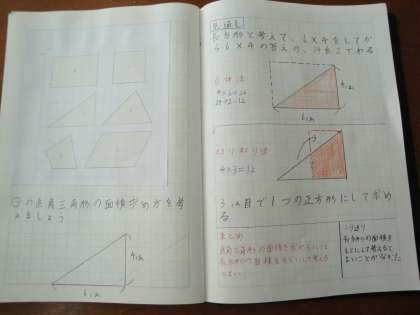 の直角三角形の面積求め方を考
えましょう
4cm
6cm
見通し
長方形と考えて、6×4をしてか
ら6×4の答えの、半分を求める
4cm
6cm
24÷2=12
4×3=12
3cm目で1つの正方形にして求め
る
まとめ
直角三角形の面積を求めるには
長方形の面積をもとにして考える
とよい。
ふり返り
長方形の面積を
もとにして考えると
よいことが分かった